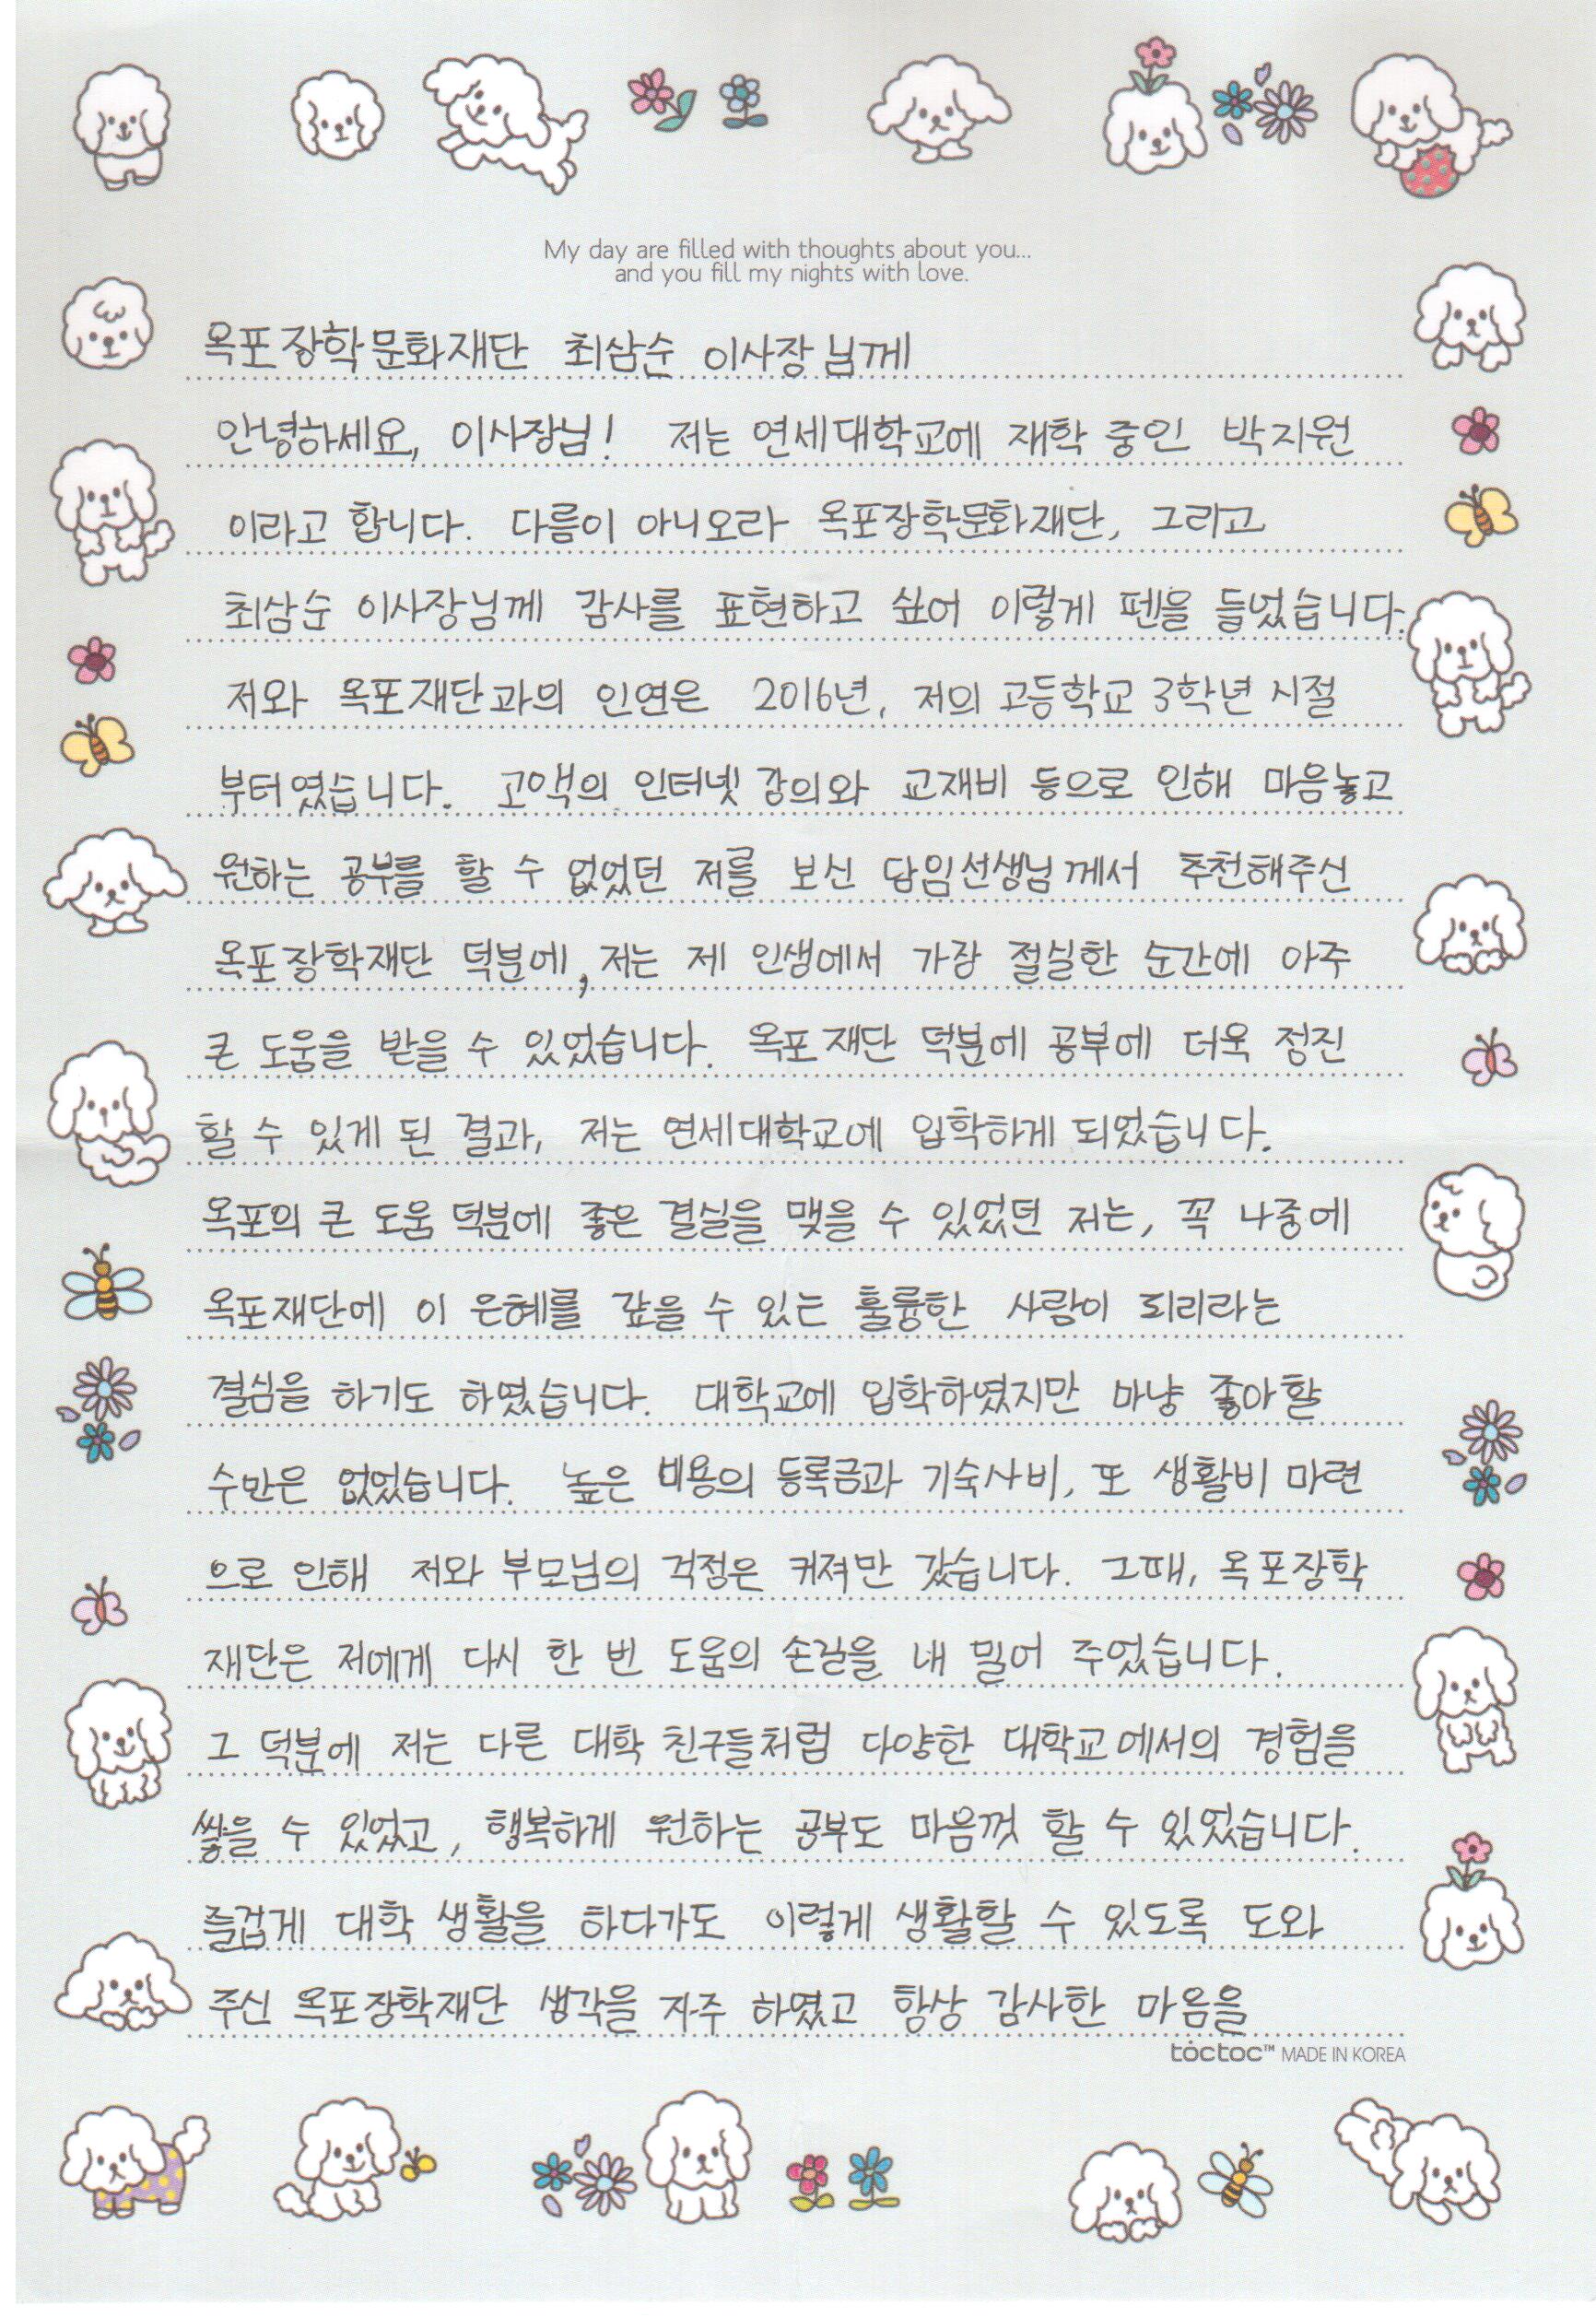 My day are filled with thoughts about you...
and you fill my nights with love.
옥포장학문화재단 최삼순 이사장님께
안녕하세요, 이사장님! 저는 연세대학교에 재학 중인 박지원
이라고 합니다. 다름이 아니오라 옥포장학문화재단, 그리고
최삼순 이사장님께 감사를 표현하고 싶어 이렇게 펜을 들었습니다.
저와 옥포재단과의 인연은 2016년, 저의 고등학교 3학년 시절
부터였습니다. 고액의 인터넷 강의와 교재비 등으로 인해 마음놓고
원하는 공부를 할 수 없었던 저를 보신 담임선생님께서 추천해주신
옥포장학재단 덕분에, 저는 제 인생에서 가장 절실한 순간에 아주
큰 도움을 받을 수 있었습니다. 옥포재단 덕분에 공부에 더욱 정진
할 수 있게 된 결과, 저는 연세대학교에 입학하게 되었습니다.
옥포의 큰 도움 덕분에 좋은 결실을 맺을 수 있었던 저는, 꼭 나중에
옥포재단에 이 은혜를 갚을 수 있는 훌륭한 사람이 되리라는
결심을 하기도 하였습니다. 대학교에 입학하였지만 마냥 좋아할
수만은 없었습니다. 높은 비용의 등록금과 기숙사비, 또 생활비 마련
으로 인해 저와 부모님의 걱정은 커져만 갔습니다. 그때, 옥포장학
재단은 저에게 다시 한 번 도움의 손길을 내 밀어 주었습니다.
그 덕분에 저는 다른 대학 친구들처럼 다양한 대학교에서의 경험을
쌓을 수 있었고, 행복하게 원하는 공부도 마음껏 할 수 있었습니다.
즐겁게 대학 생활을 하다가도 이렇게 생활할 수 있도록 도와
주신 옥포장학재단 생각을 자주 하였고 항상 감사한 마음을
toctoc™ MADE IN KOREA